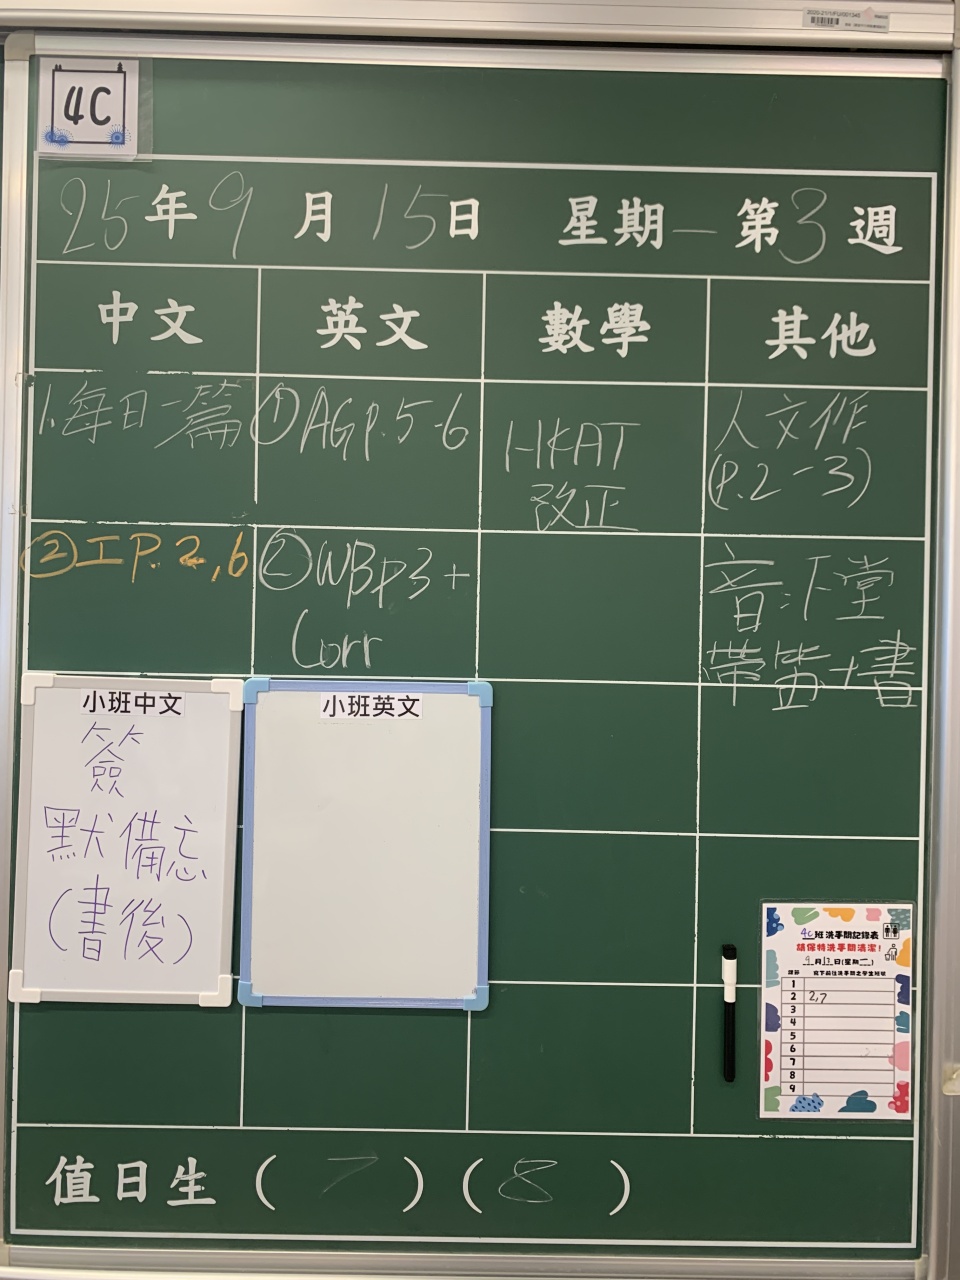 4C
25年9月15日 星期一 第3週
中文 英文 數學 其他
1. 每日一篇
②工P.2,6
①AGp.5-6
②WBp3+
Corr
HKAT
改正
人文作
(P.2-3)
音:下堂
帶笛+書
小班中文
簽
默備忘
(書後)
小班英文
4C班洗手間記錄表
請保持洗手間清潔!
課節
1
2 2,7
3
4
5
6
7
8
9
值日生 ( 7 ) ( 8 )